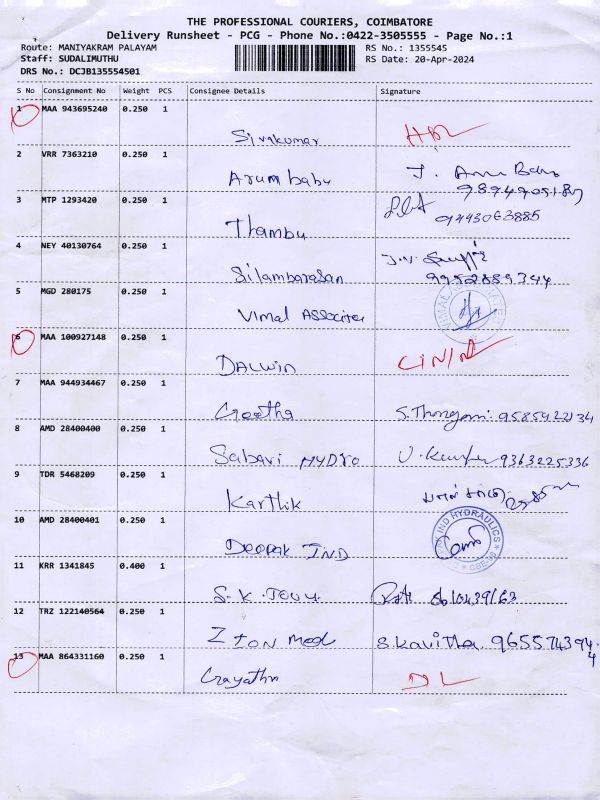 THE PROFESSIONAL COURIERS, COIMBATORE
Delivery Runsheet - PCG - Phone No.:0422-3505555 - Page No.:1
Route: MANIYAKRAM PALAYAM RS No.: 1355545
Staff: SUDALIMUTHU RS Date: 20-Apr-2024
DRS No.: DCJB135554501
S No Consignment No Weight PCS Consignee Details Signature
1 MAA 943695240 0.250 1
Sivakumar
2 VRR 7363210 0.250 1
Arum babu J.
3 MTP 1293420 0.250 1
Thambu 9443063885
4 NEY 40130764 0.250 1
Silambarasan 9952889344
5 MGD 280175 0.250 1
Vimal Associates
6 MAA 100927148 0.250 1
DALWIN
7 MAA 944934467 0.250 1
Geetha S. 9585922134
8 AMD 28400400 0.250 1
Sabari HYDRO 9363225336
9 TDR 5468209 0.250 1
Karthik
10 AMD 28400401 0.250 1
Deepak IND IND HYDRAULICS
11 KRR 1341845 0.400 1
S.K.
12 TRZ 122140564 0.250 1
ZION Med S. Kavitha 9655743944
13 MAA 864331160 0.250 1
Gayathri DL